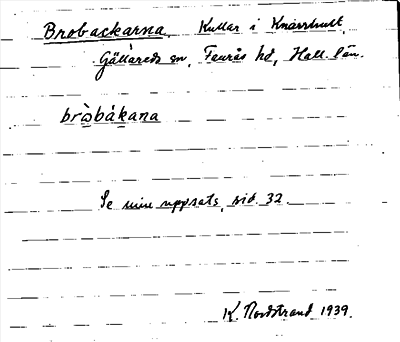 Brobackarna. Kullar i Knärshult,
Gällareds sn, Faurås hd, Hall. län.
brò̰bákana
Se min uppsats, sid. 32.
K. Nordstrand 1939.